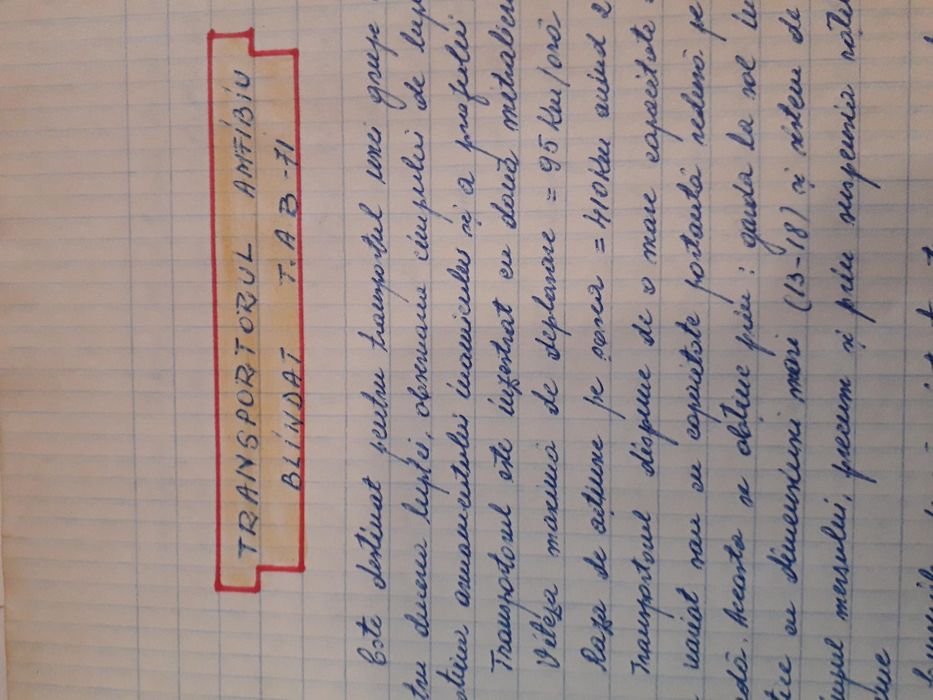 TRANSPORTORUL AMFIBIU
BLINDAT T.A.B-71
Este destinat pentru transportul unei grupe
tru ducerea luptei, observarea cîmpului de lup
armamentului inamicului și a
Transportorul este înzestrat cu două mitralier
Viteza maximă de deplasare = 95 km/oră
Raza de acțiune pe șosea = 410 km avînd 2
Transportorul dispune de o mare capacitate
variat sau cu capacitate portantă redusă pe
dă. Aceasta se obține prin: garda la sol
cu dimensiuni mari (13-18) și sistem de
mersului, precum și prin suspensia